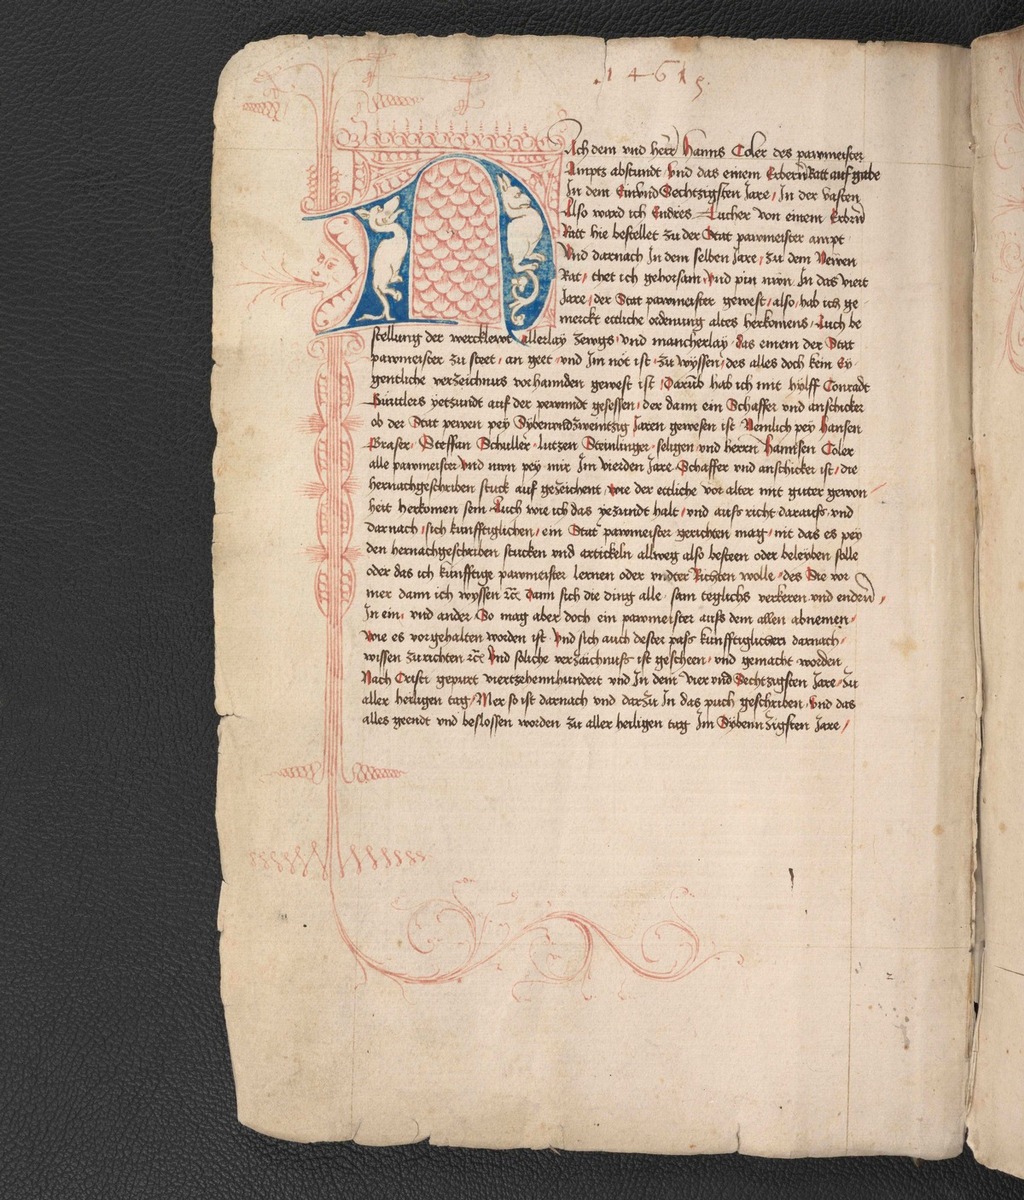 1461s
Nach dem vnd herr Hanns Coler des pawmeister
Ampts abstundt Vnd das einem Erbern Ratt auf gabe
In dem Einvnd Sechtzigsten Jare / In der vasten
Also ward ich Endres Tucher von einem Erbrn
Ratt hie bestellet zu der Stat pawmeister ampt
Vnd darnach In dem selben Jare / zu dem Newen
Rat / thet ich gehorsam Vnd pin nwn In das viert
Jare / der Stat pawmeister gewest / also hab ich ge-
merckt ettliche ordenung altes herkomens / Auch be
stellung der wercklewt allerlay zewgs vnd mancherlay das einem der Stat
pawmeister zu steet / an geet vnd Im not ist zu wyssen / des alles doch kein Ey-
gentliche verzeichnus vorhannden gewest ist / Darub hab ich mit hylff Conradt
yetzundt auf der gesessen / der dann ein Schaffer vnd anschicker
ob der Stat pewen pey Sybenvndzweintzig Jaren gewesen ist Nemlich pey Hansen
Graser / Steffan Schuller lutzen Steinlinger seligen vnd herrn Hannsen Coler
alle pawmeister Vnd nwn pey mir Im vierden Jare Schaffer vnd anschicker ist / die
hernachgeschriben stuck auf gezeichent / wie der ettliche vor alter mit guter gewon /
heit herkomen sein Auch wie ich das yezundt halt / vnd auss richt darauss vnd
darnach / sich kunfftiglichen / ein Stat pawmeister gerichten mag / nit das es pey
den hernachgeschriben stucken vnd artickeln allweg also besteen oder beleyben solle
oder das ich künfftige pawmeister lernen oder vndter Richten wolle / des Sie vor
mer dann ich wyssen Dann sich die ding alle sam teglichs verkeren vnd endern /
In ein / vnd ander So mag aber doch ein pawmeister auss dem allen abnemen /
Wie es vorgehalten worden ist Vnd sich auch dester pass kunfftiglichen darnach /
wissen zu richten Vnd soliche verzaichnuss ist gescheen / vnd gemacht worden
Nach Cristi gepurt viertzehennhundert vnd In dem vier vnd Sechtzigsten Jare / zu
aller heiligen tag / Mer so ist darnach vnd darzu In das puch geschriben Vnd das
alles geendt vnd beslossen worden zu aller heiligen tag Im Sybenntzigsten Jare /